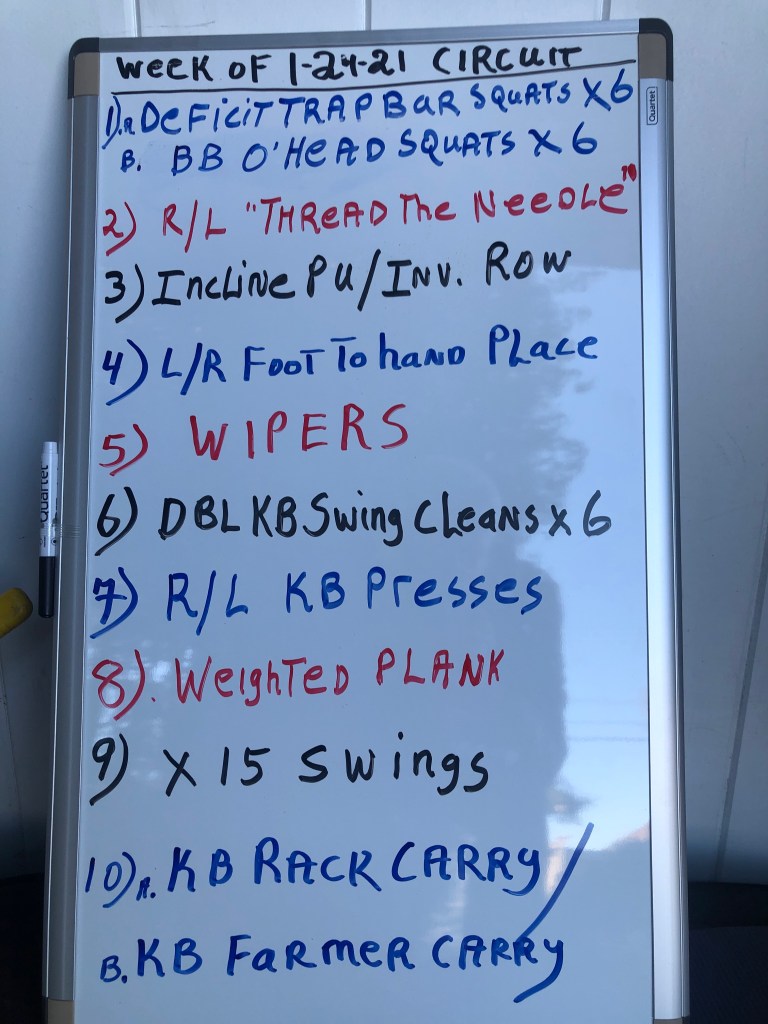 WEEK OF 1-24-21 CIRCUIT
1) A DEFICIT TRAP BAR SQUATS X6
B. BB O'HEAD SQUATS X 6
2) R/L "THREAD THE NEEDLE"
3) INCLINE PU/INV. ROW
4) L/R FOOT TO HAND PLACE
5) WIPERS
6) DBL KB SWING CLEANS X 6
7) R/L KB PRESSES
8). WEIGHTED PLANK
9) X 15 SWINGS
10) A. KB RACK CARRY/
B. KB FARMER CARRY
Quartet
Quartet